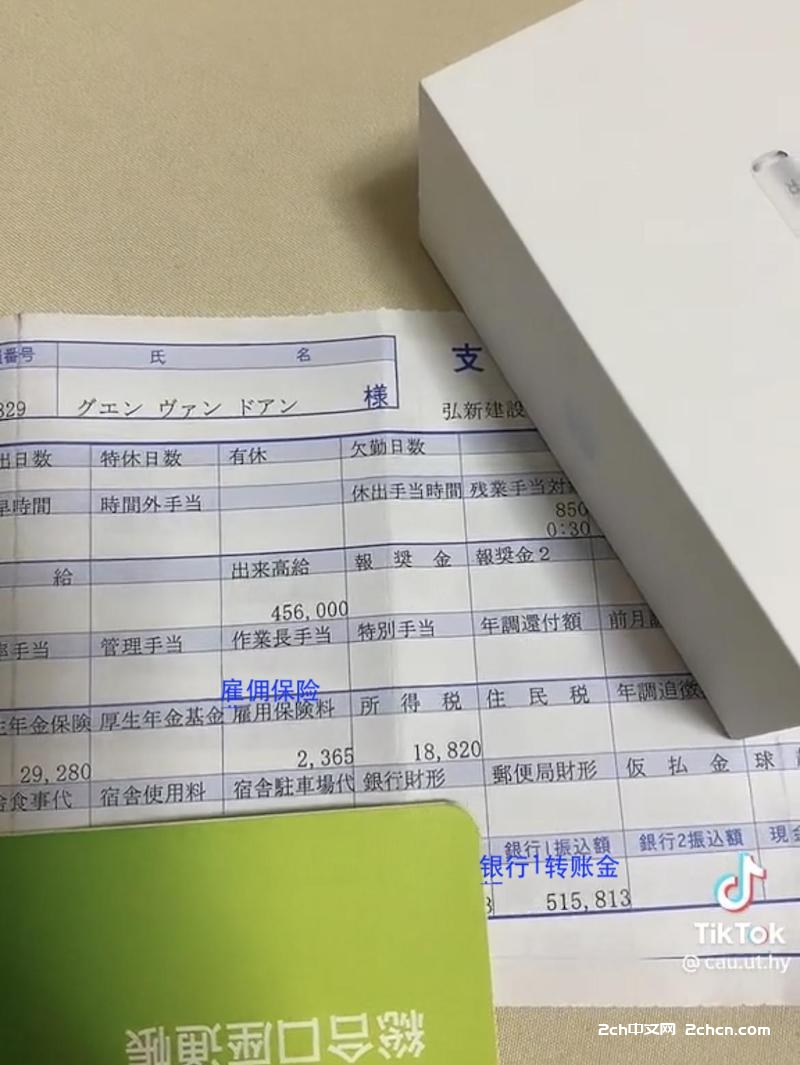 番号 氏 名 支
829 グエン ヴァン ドアン 様 弘新建設
出日数 特休日数 有休 欠勤日数
早時間 時間外手当 休出手当時間 残業手当対
850
0:30
給 出来高給 報 奨 金 報奨金2
456,000
手当 管理手当 作業長手当 特別手当 年調還付額 前月
雇佣保险
生年金保険 厚生年金基金 雇用保険料 所 得 税 住 民 税 年調追徴
29,280 2,365 18,820
食事代 宿舎使用料 宿舎駐車場代 銀行財形 郵便局財形 仮 払 金 球
銀行1振込額 銀行2振込額 現金
银行1转账金
3 515,813
TikTok
@cau.ut.hy
総合口座通帳
2ch中文网 2chcn.com